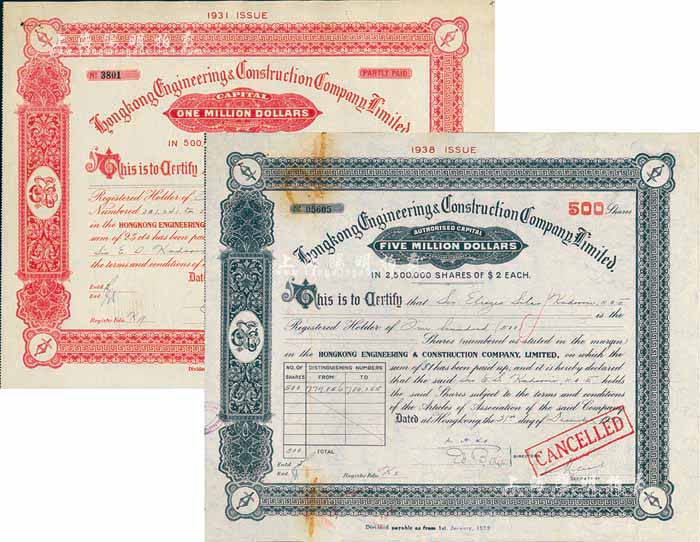 1931 ISSUE
No 3801
PARTLY PAID
Hongkong Engineering & Construction Company, Limited.
CAPITAL
ONE MILLION DOLLARS
IN 500,
This is to Certify
Registered Holder of
Numbered
in the HONGKONG ENGINEERING
sum of 25 cts has been paid
Sir E. S. Kadoorie
the terms and conditions of
Dated
Entd.
Exd.
Register Folio
Divide
1938 ISSUE
No 05605
500 Shares
Hongkong Engineering & Construction Company, Limited.
AUTHORISED CAPITAL
FIVE MILLION DOLLARS
IN 2,500,000 SHARES OF $2 EACH.
This is to Certify that Sir Elezer Silas Kadoorie, K.B.E.
is the
Registered Holder of Five hundred (500)
Shares (numbered as stated in the margin)
in the HONGKONG ENGINEERING & CONSTRUCTION COMPANY, LIMITED, on which the
sum of $1 has been paid up, and it is hereby declared
that the said Sir E. S. Kadoorie, K.B.E. holds
the said Shares subject to the terms and conditions
of the Articles of Association of the said Company.
Dated at Hongkong, the 31st day of
NO. OF SHARES
DISTINGUISHING NUMBERS
FROM
TO
500
500 TOTAL
CANCELLED
DIRECTORS
SECRETARY
Entd.
Exd.
Register Folio
Dividend payable as from 1st. January, 1939